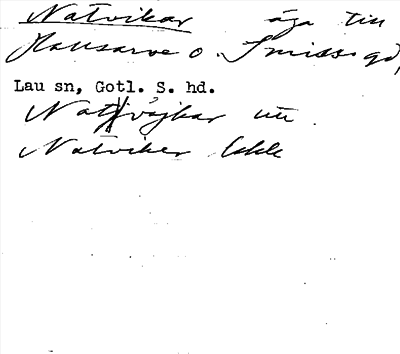 Natvikar äga till
Hallsarve o. Smiss gd,
Lau sn, Gotl. S. hd.
Natvikar
Natviker